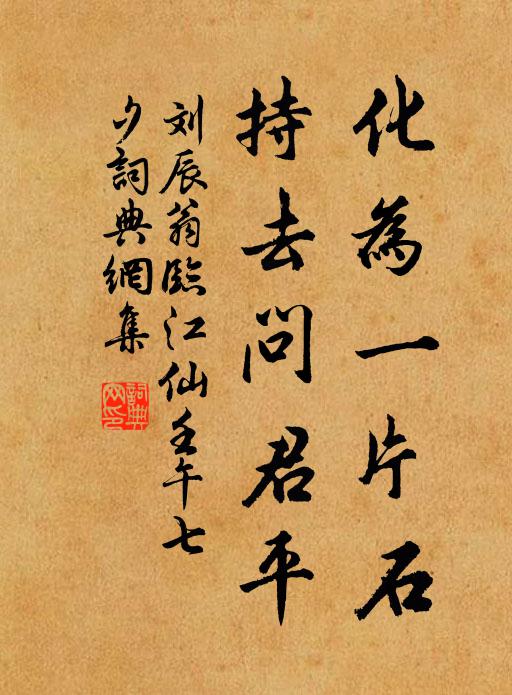 化為一片石
持去問君平
刘辰翁臨江仙壬午七
夕詞典網集
詞典
网印